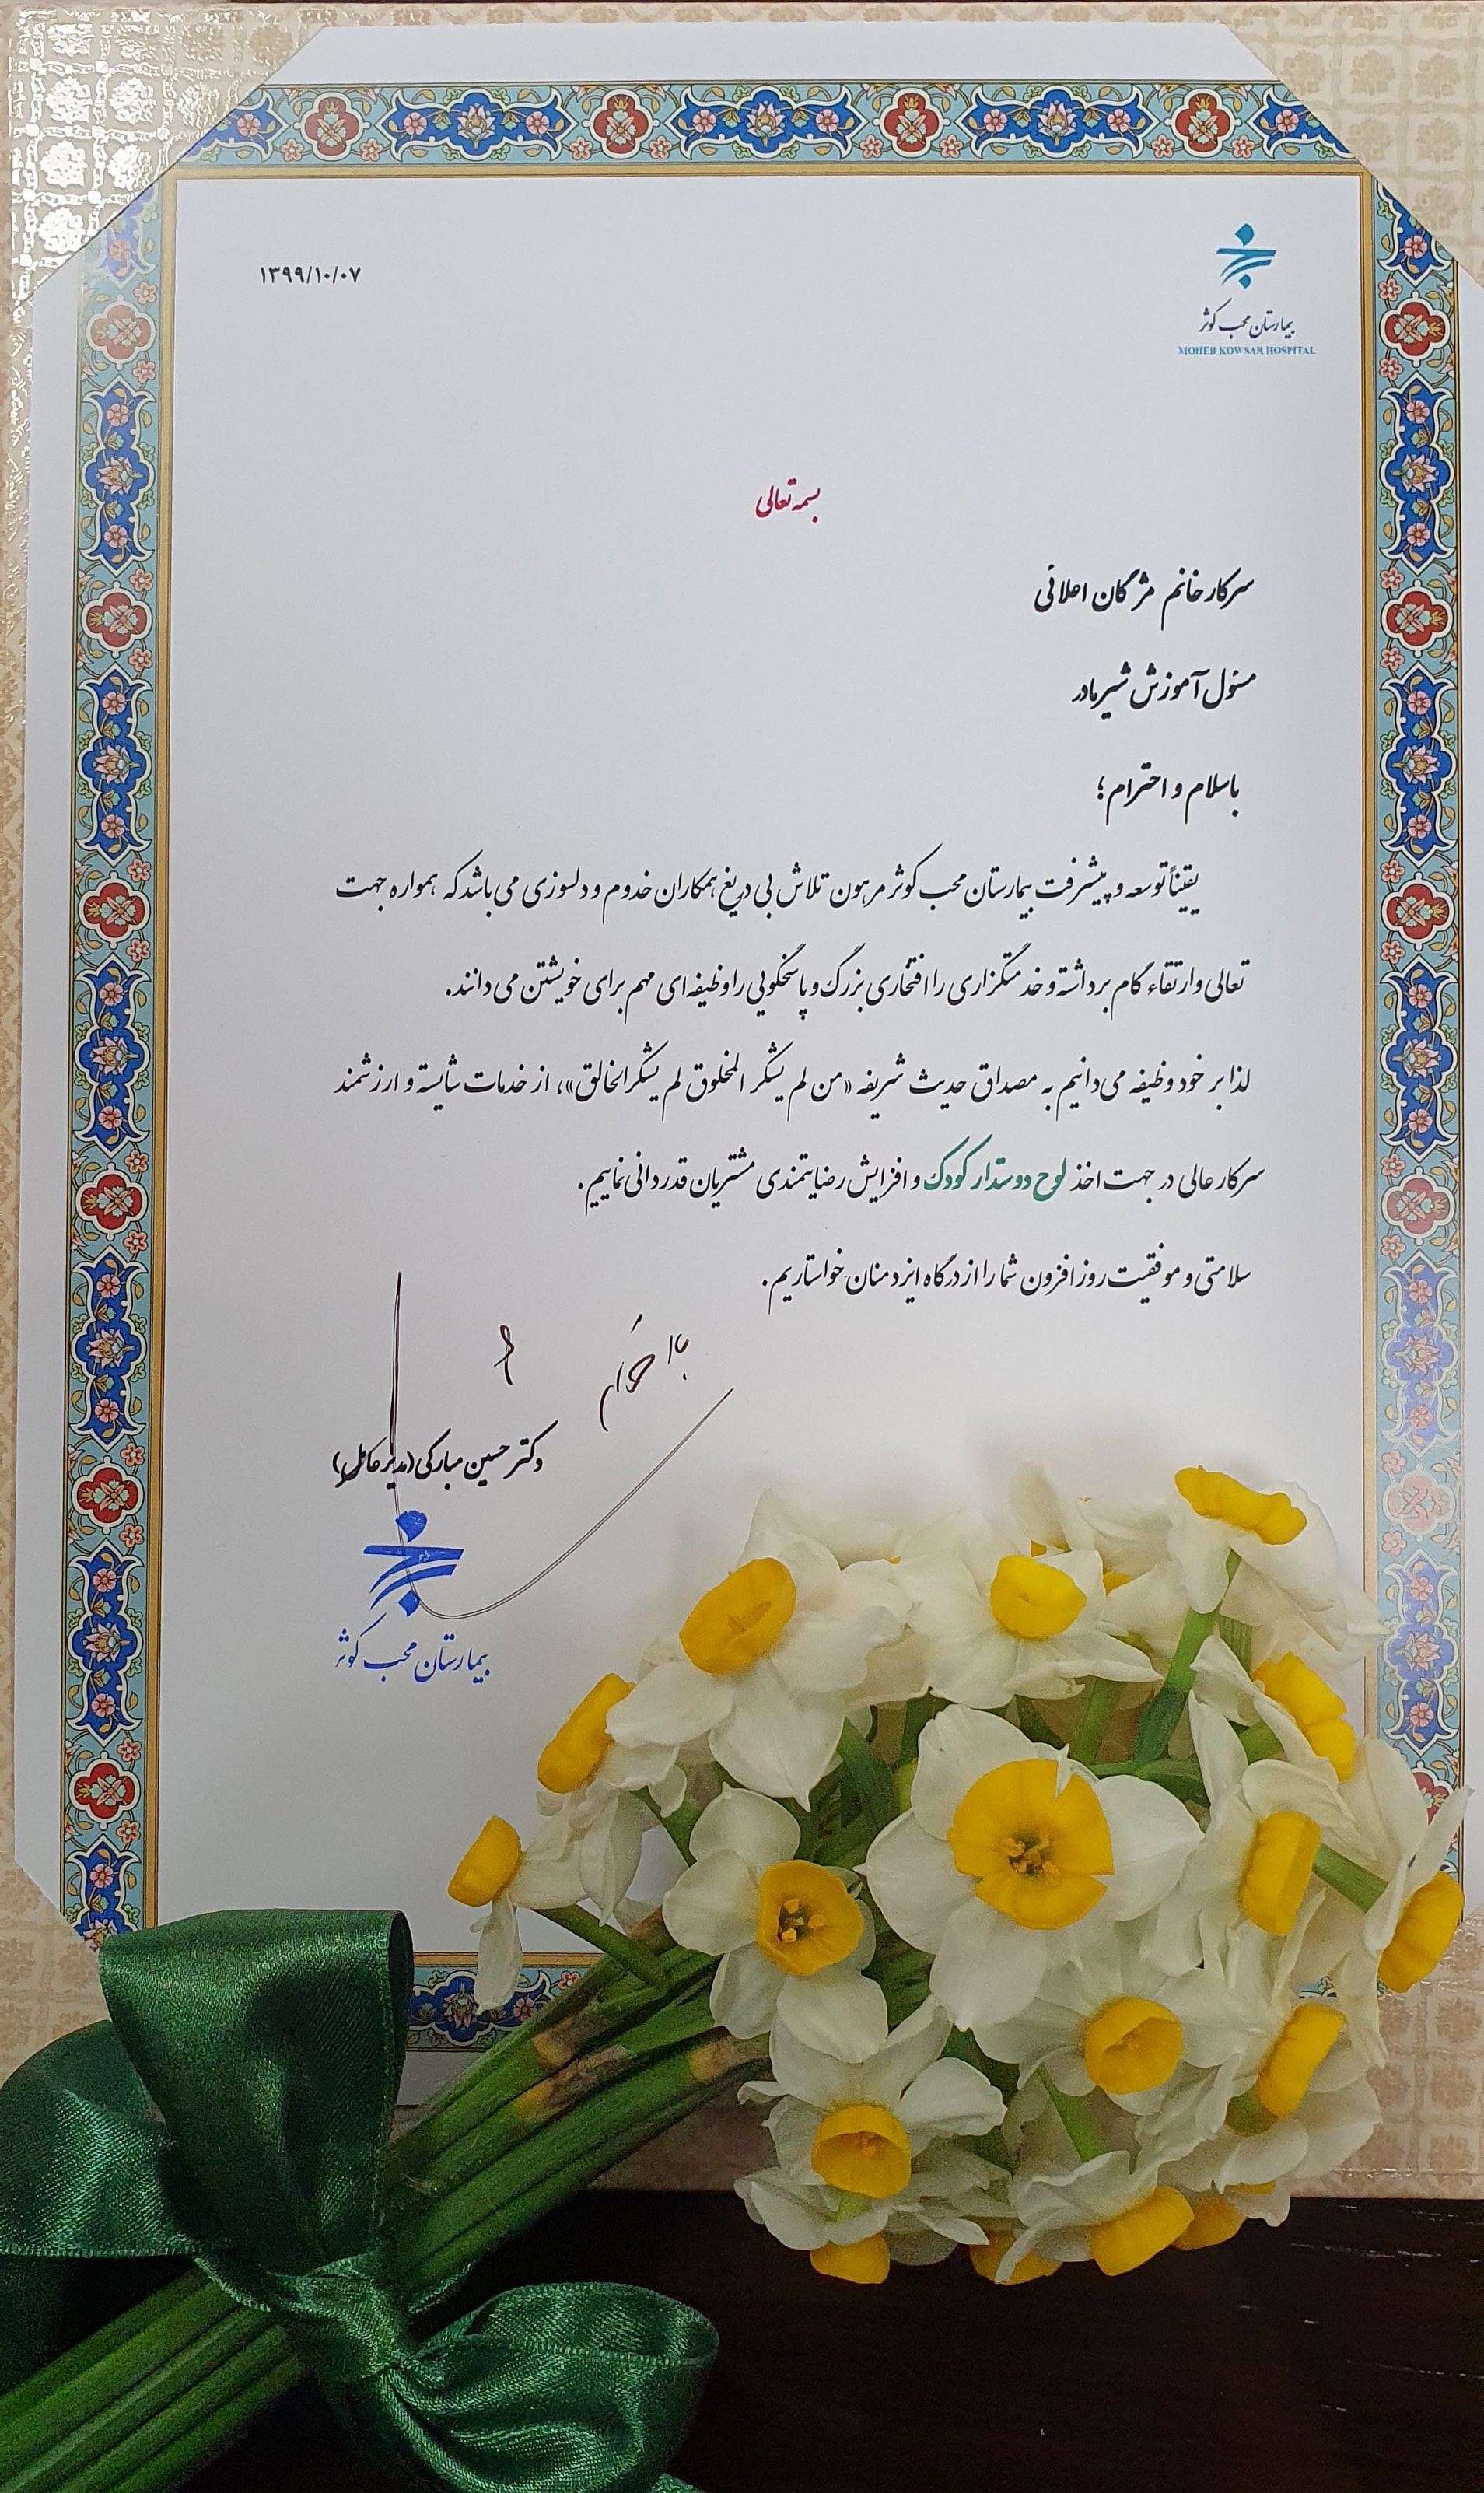 ۱۳۹۹/۱۰/۰۷
بیمارستان محب کوثر
MOHEB KOWSAR HOSPITAL
بسمه تعالی
سرکار خانم مژگان اعلائی
مسئول آموزش شیرمادر
باسلام و احترام؛
یقیناً توسعه و پیشرفت بیمارستان محب کوثر مرهون تلاش بی دریغ همکاران خدوم و دلسوزی می باشد که همواره جهت
تعالی و ارتقاء گام برداشته و خدمتگزاری را افتخاری بزرگ و پاسخگویی را وظیفه ای مهم برای خویشتن می دانند.
لذا بر خود وظیفه می دانیم به مصداق حدیث شریفه «من لم یشکر المخلوق لم یشکر الخالق»، از خدمات شایسته و ارزشمند
سرکار عالی در جهت اخذ لوح دوستدار کودک و افزایش رضایتمندی مشتریان قدردانی نماییم.
سلامتی و موفقیت روز افزون شما را از درگاه ایزد منان خواستاریم.
با احترام
دکتر حسین مبارکی (مدیر عامل)
بیمارستان محب کوثر